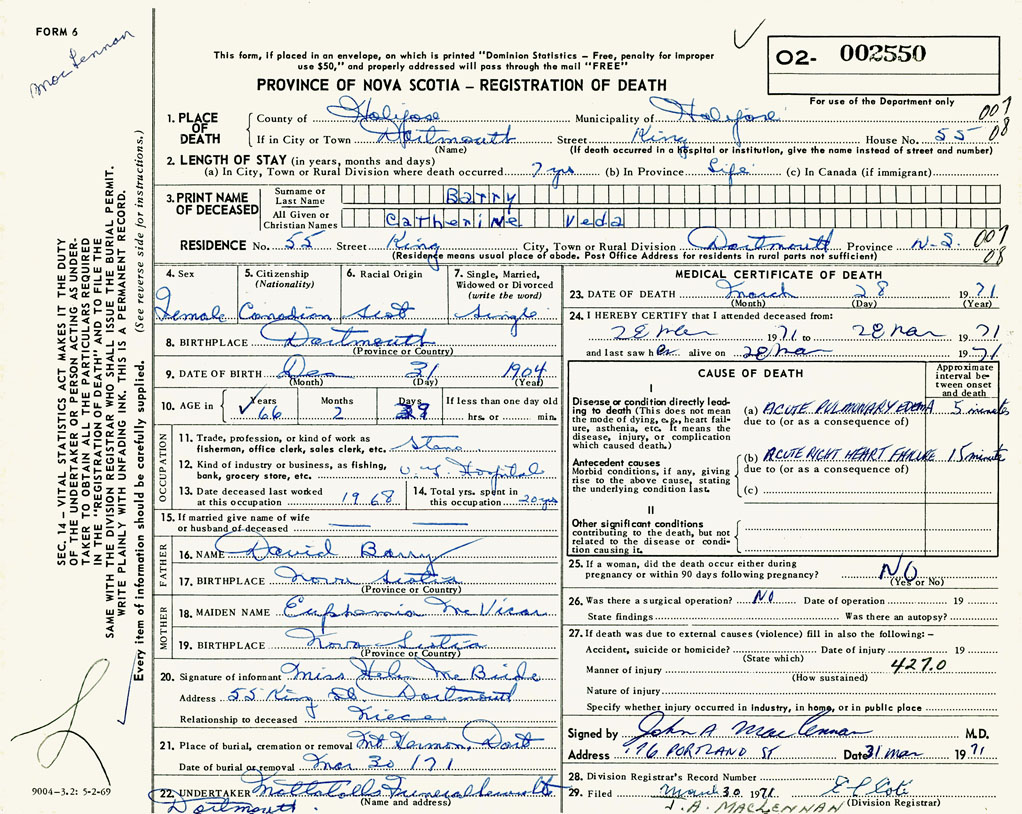 FORM 6
MacLennan
This form, if placed in an envelope, on which is printed "Dominion Statistics – Free, penalty for improper
use $50," and properly addressed will pass through the mail "FREE"
02- 002550
For use of the Department only
PROVINCE OF NOVA SCOTIA – REGISTRATION OF DEATH
1. PLACE OF DEATH County of Halifax Municipality of Halifax 007
If in City or Town Dartmouth Street King House No. 55 08
(Name) (If death occurred in a hospital or institution, give the name instead of street and number)
2. LENGTH OF STAY (in years, months and days)
(a) In City, Town or Rural Division where death occurred 7 yrs (b) In Province Life (c) In Canada (if immigrant)
3. PRINT NAME OF DECEASED Surname or Last Name Barry
All Given or Christian Names Catherine Veda
RESIDENCE No. 55 Street King City, Town or Rural Division Dartmouth Province N.S. 007
(Residence means usual place of abode. Post Office Address for residents in rural parts not sufficient) 08
4. Sex Female
5. Citizenship (Nationality) Canadian
6. Racial Origin Scot
7. Single, Married, Widowed or Divorced (write the word) Single
8. BIRTHPLACE Dartmouth
(Province or Country)
9. DATE OF BIRTH Dec 31 1904
(Month) (Day) (Year)
10. AGE in Years 66 Months 2 Days If less than one day old hrs. or min.
OCCUPATION
11. Trade, profession, or kind of work as
fisherman, office clerk, sales clerk, etc. Steno
12. Kind of industry or business, as fishing,
bank, grocery store, etc. Hospital
13. Date deceased last worked at this occupation 1968
14. Total yrs. spent in this occupation 20 yrs
15. If married give name of wife
or husband of deceased
FATHER
16. NAME David Barry
17. BIRTHPLACE Nova Scotia
(Province or Country)
MOTHER
18. MAIDEN NAME Euphemia McVicar
19. BIRTHPLACE Nova Scotia
(Province or Country)
20. Signature of informant Miss Helen McBride
Address 55 King St. Dartmouth
Relationship to deceased Niece
21. Place of burial, cremation or removal Mt Hermon, Dart
Date of burial or removal Mar 30/71
22. UNDERTAKER Mattatalls Funeral
Dartmouth.
(Name and address)
MEDICAL CERTIFICATE OF DEATH
23. DATE OF DEATH March 28 1971
(Month) (Day) (Year)
24. I HEREBY CERTIFY that I attended deceased from:
28 Mar 1971 to 28 Mar 1971
and last saw her alive on 28 Mar 1971
CAUSE OF DEATH
Approximate interval between onset and death
I
Disease or condition directly leading to death (This does not mean the mode of dying, e.g., heart failure, asthenia, etc. It means the disease, injury, or complication which caused death.)
(a) ACUTE PULMONARY EDEMA 5 minutes
due to (or as a consequence of)
Antecedent causes
Morbid conditions, if any, giving rise to the above cause, stating the underlying condition last.
(b) ACUTE RIGHT HEART FAILURE 15 minutes
due to (or as a consequence of)
(c)
II
Other significant conditions
contributing to the death, but not
related to the disease or condition causing it.
25. If a woman, did the death occur either during
pregnancy or within 90 days following pregnancy? NO
(Yes or No)
26. Was there a surgical operation? NO Date of operation 19
State findings Was there an autopsy?
27. If death was due to external causes (violence) fill in also the following: –
Accident, suicide or homicide? Date of injury 19
(State which)
Manner of injury 427.0
(How sustained)
Nature of injury
Specify whether injury occurred in industry, in home, or in public place
Signed by John A MacLennan M.D.
Address 176 PORTLAND ST Date 31 Mar 1971
28. Division Registrar's Record Number
29. Filed March 30 1971
J. A. MACLENNAN (Division Registrar)
SEC. 14 – VITAL STATISTICS ACT MAKES IT THE DUTY
OF THE UNDERTAKER OR PERSON ACTING AS UNDER-
TAKER TO OBTAIN ALL THE PARTICULARS REQUIRED
IN THE "REGISTRATION OF DEATH" AND TO FILE THE
SAME WITH THE DIVISION REGISTRAR WHO SHALL ISSUE THE BURIAL PERMIT.
WRITE PLAINLY WITH UNFADING INK. THIS IS A PERMANENT RECORD.
Every item of information should be carefully supplied. (See reverse side for instructions.)
9004–3.2: 5-2-69